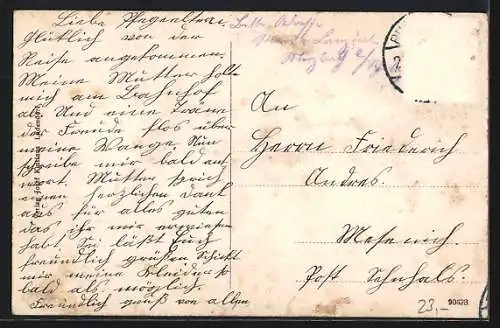 Liebe Pflegeeltern.
Glücklich von der
Reise angekommen.
Meine Mutter holte
mich am Bahnhof
ab. Und eine Träne
der Freude flos über
meine Wange. Nun
schreibe mir bald ant
wort. Mutter sprich
einen herzlichen dank
aus für alles guten
das ihr mir erwiesen
habt. Sie läßt Euch
freundlich grüßen Schickt
mir meine Kleider so
bald als möglich.
Freundlich grüß von allen
Bitte Adresse
An
Herrn Friederich
Andres.
Mesenich.
Post Sehnhals.
23,-